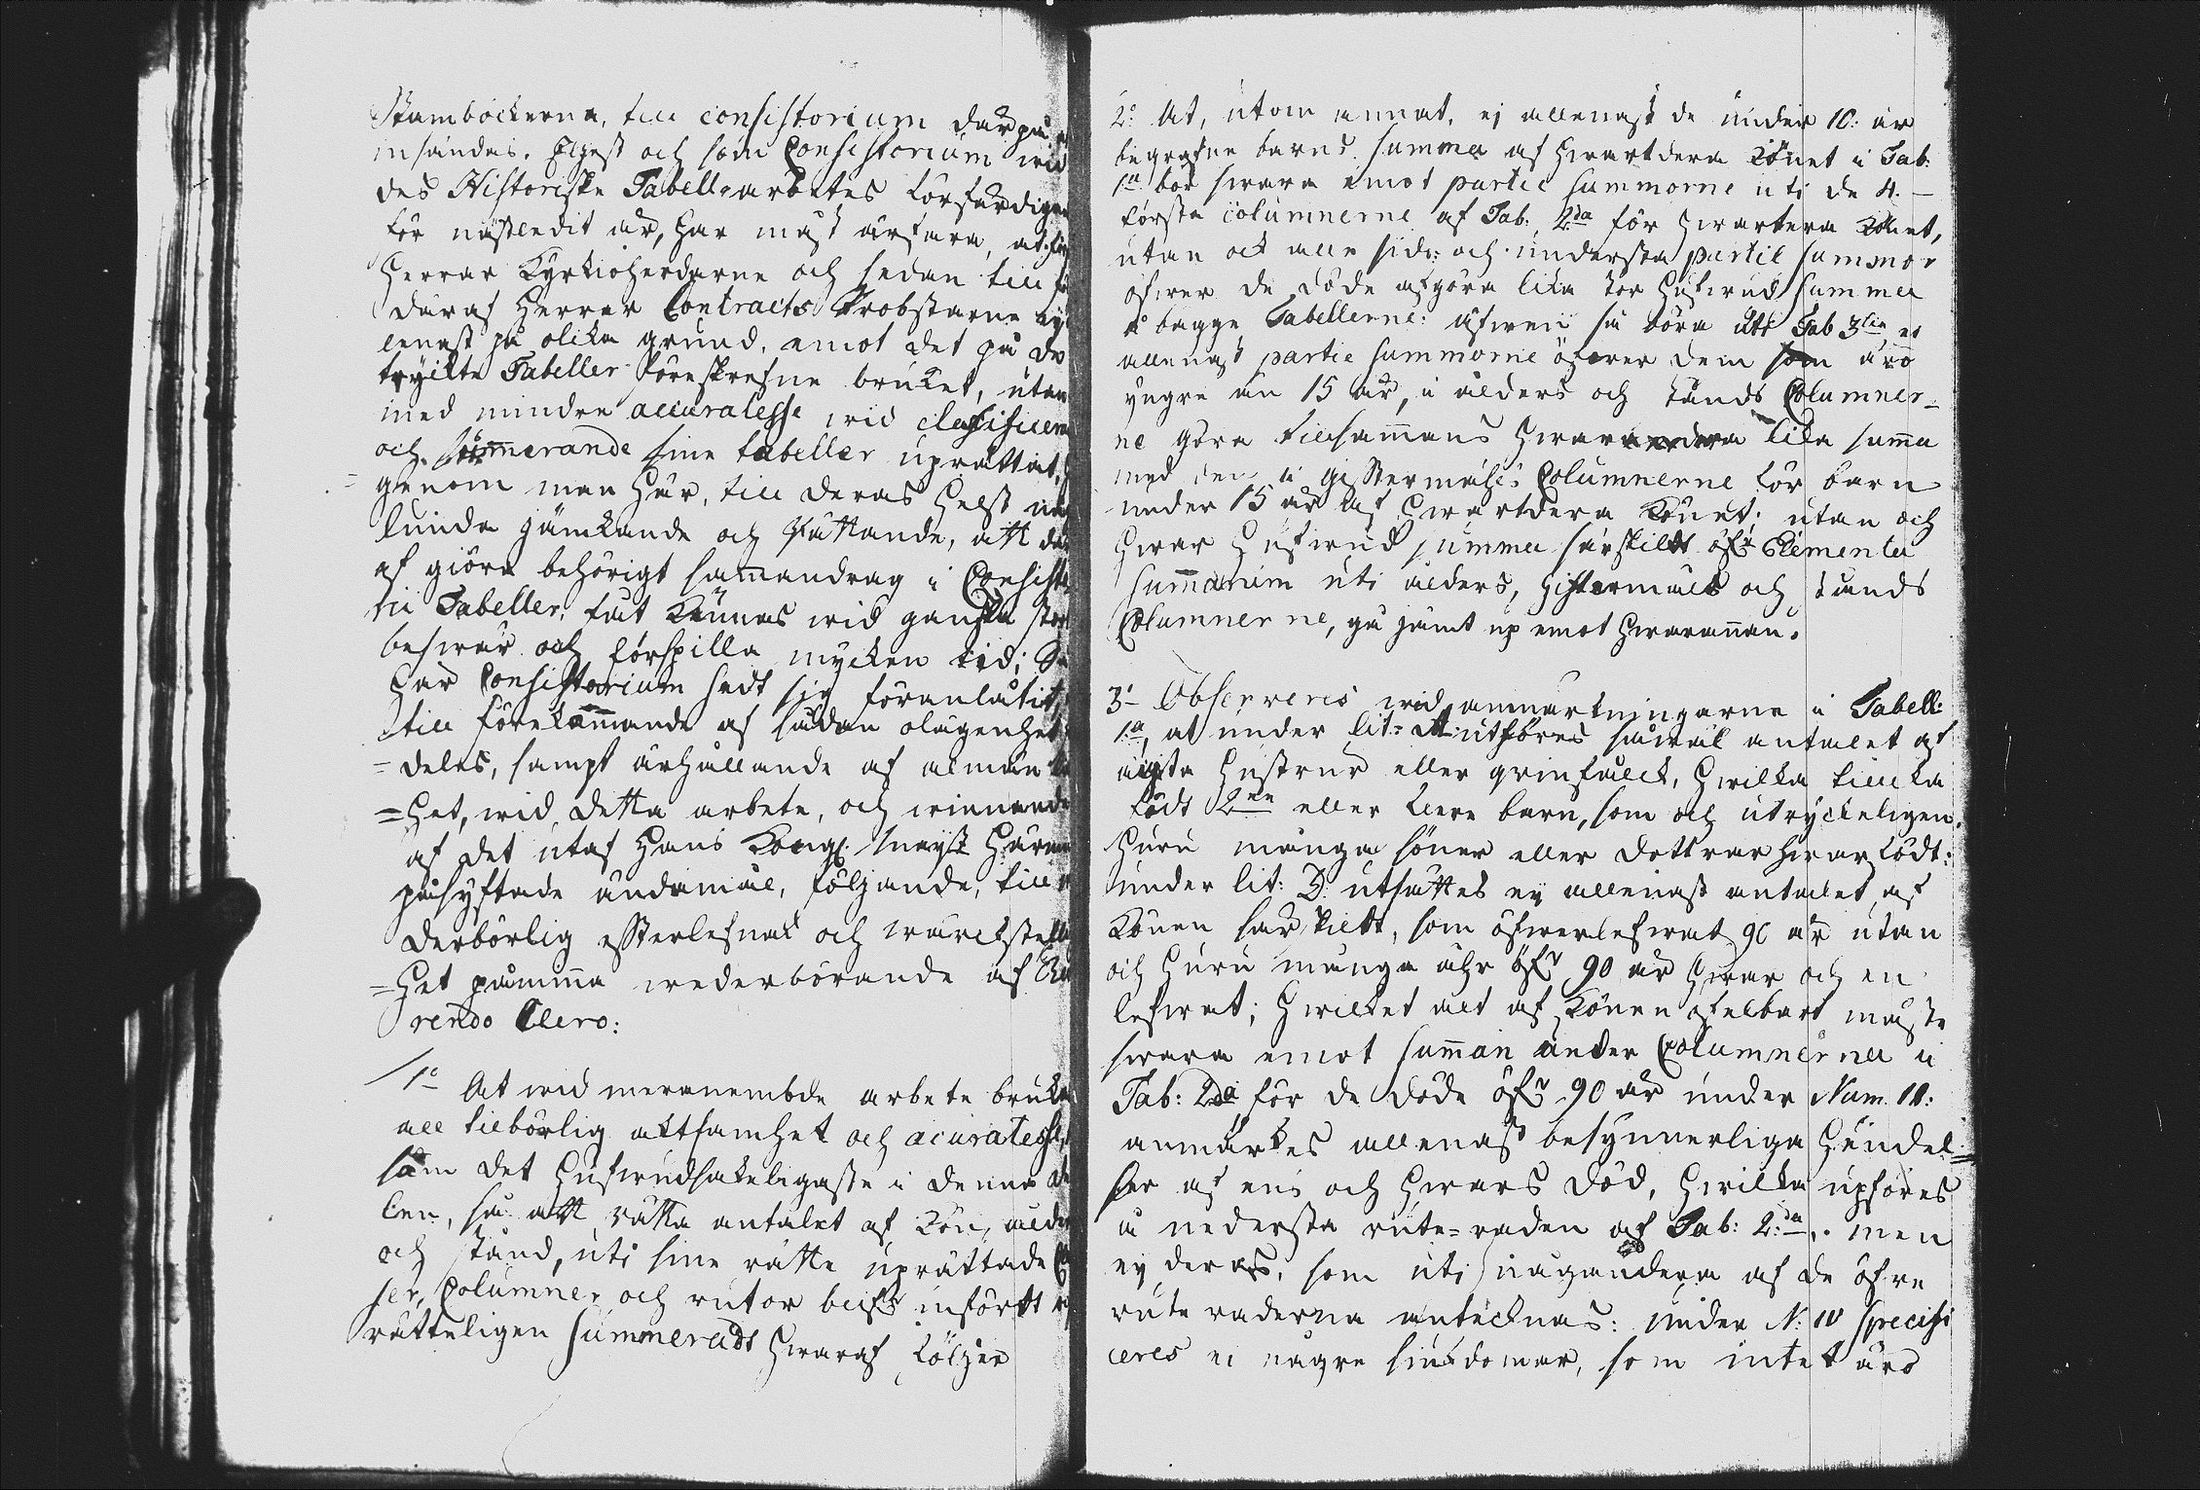 Stamböckerna, till consistorium därpå
insändas. Elgest och som Consistorium wid
des Historiske Tabell-arbetes förfärdigan
för nästledit år, har måst ärfara, at
Herrar Kyrkioherdarne och sedan till
däraf Herrar Contracts Probstarne ey
lenast på olika grund, emot det på de
tryckte Tabeller föreskrefne bruket, utan
med mindre accuratesse wid clasificera
och summerande sine tabeller uprättat,
genom man här, till deras helst
lunda jämkande och sättande, att
af giöra behörigt sammandrag i Consisto
rii Tabeller, fåt kännas wid ganska stor
beswär och förspilla mycken tid; Så
har Consistorium sedt sig föranlåtit,
till förekommande af sådan olägenhet
=deles, sampt ärhållande af almän
=het, wid detta arbete, och winnande
af det utaf Hans Kongl. Mayst härun
påsyftade ändamål, följande, till
derbörlig efterlefnad och wärckställ
=het påminna wederbörande af Ve
rendo Clero:
1:o At wid meranembde arbete bruka
all tilbörlig aktsamhet och acuratesse,
som det hufwudsakeligaste i denne
len, så att rätta antalet af kön, ålder
och stånd, uti sine rätte uprättade
ser, Columner och rutor blifr infördt
rätteligen summeradt hwaraf följer
2:o At, utom annat, ej allenast de under 10: år
begrafne barns summa af hwartdera könet i Tab.
1:a bör swara emot partie summorne uti de 4.
första columnerne af Tab. 2:da för hwartera könet,
utan ock alla sido- och understa partie summor
öfwer de döde utgöra lika stor hufwud summa
i bägge Tabellerne: äfwen så böra uti Tab 3:tia ei
allenast partie summorne öfwer dem som äro
yngre än 15 år, i ålders och stånds Columner-
ne göra tillsammans hwarandra lika summa
med den i Giftermåls Columnerne för barn
under 15 år af hwartdera könet; utan och
hwar hufwud summa särskildt öfr Elementa
summarum uti ålders, giftermåls och stånds
Columnerne, gå jämt up emot hwarannan.
3:o Observeres wid anmärkningarne i Tabell:
1:a, at under lit: A utföres såwäl antalet af
ägta hustrur eller qwinfolck, hwilka tillika
födt 2:ne eller flere barn, som och utryckeligen.
huru många söner eller döttrar hwar födt:
under lit: D. utsättes ey allenast antalet af
könen särskildt, som öfwerlefwat 90 år utan
och huru många åhr öfr 90 år hwar och en
lefwat; hwilket alt af könen ofelbart måste
swara emot summan under Columnerna i
Tab: 2:da för de döde öfr 90 år under Num. 10:
anmärkes allenast besynnerliga händel=
ser af ens och hwars död, hwilka upföres
i nedersta rute=raden af Tab: 2:da.. men
ey deras, som uti någondera af de öfre
rute raderna antecknas: under N: 10 specifi
ceres ei någre siukdomar, som intet äro